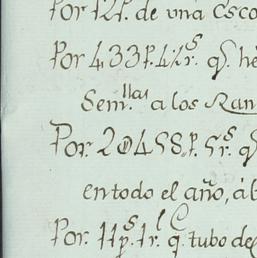 Por 12P. de vna esco
Por 433P. 4½rˢ. q̃. he
Sem.llas a los Ran
Por. 20458P. 5rˢ. q̃.
entodo el año, á
Por. 11pˢ. 1rl. q. tubo de